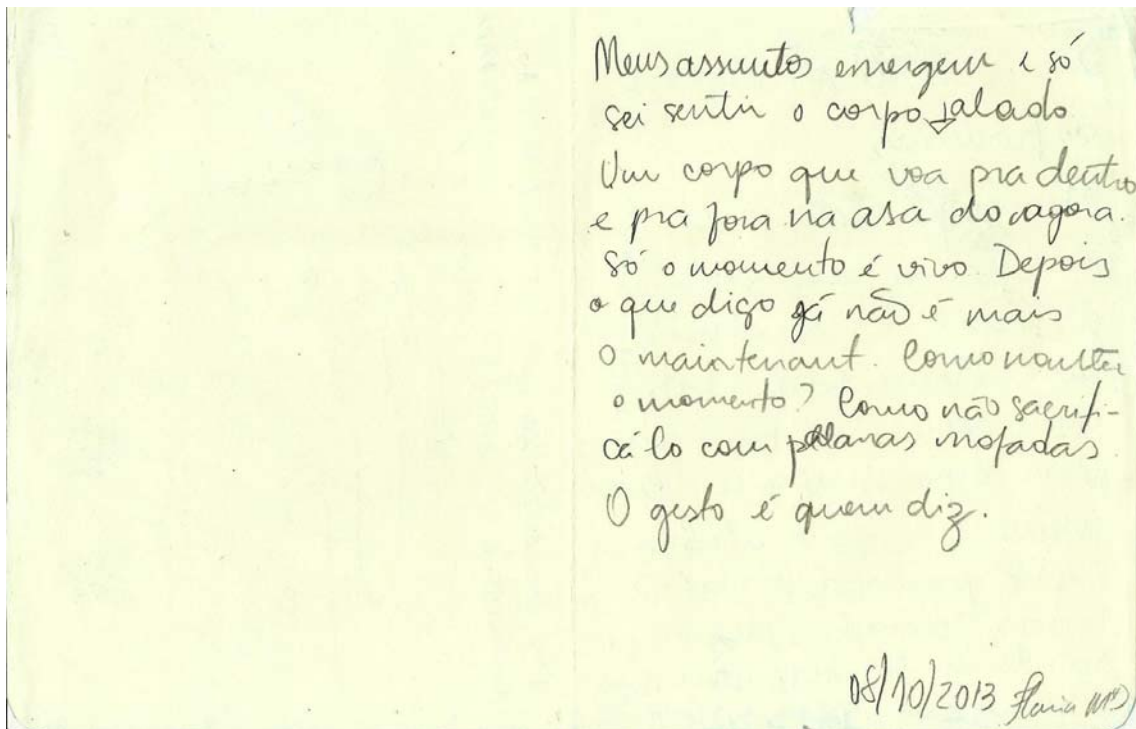 Meus assuntos emergem e só
sei sentir o corpo alado
Um corpo que voa pra dentro
e pra fora na asa do agora.
só o momento é vivo. Depois
o que digo já não é mais
o maintenant. Como
o momento? Como não sacrifi-
cá-lo com palavras mofadas
O gesto é quem diz.
08/10/2013 Flavia